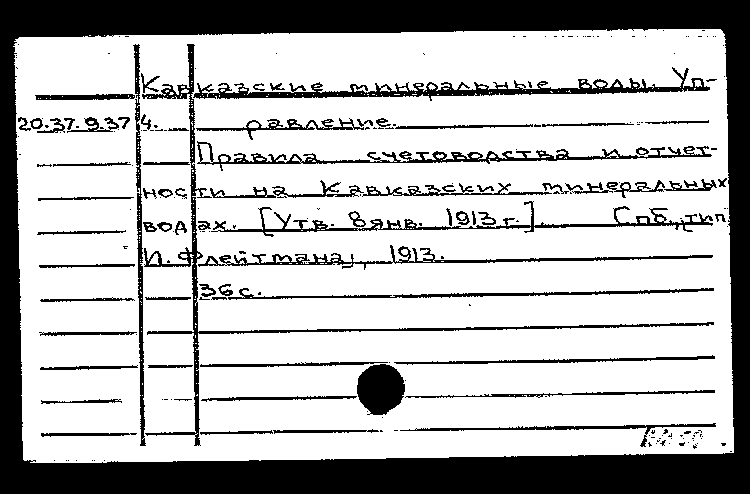 Кавказские минеральные воды. Уп-
20.37.9.37 4. равление.
Правила счетоводства и отчет-
ности на Кавказских минеральных
водах. [Утв. 8 янв. 1913 г.]. Спб., тип.
И. Флейтмана, 1913.
36 с.